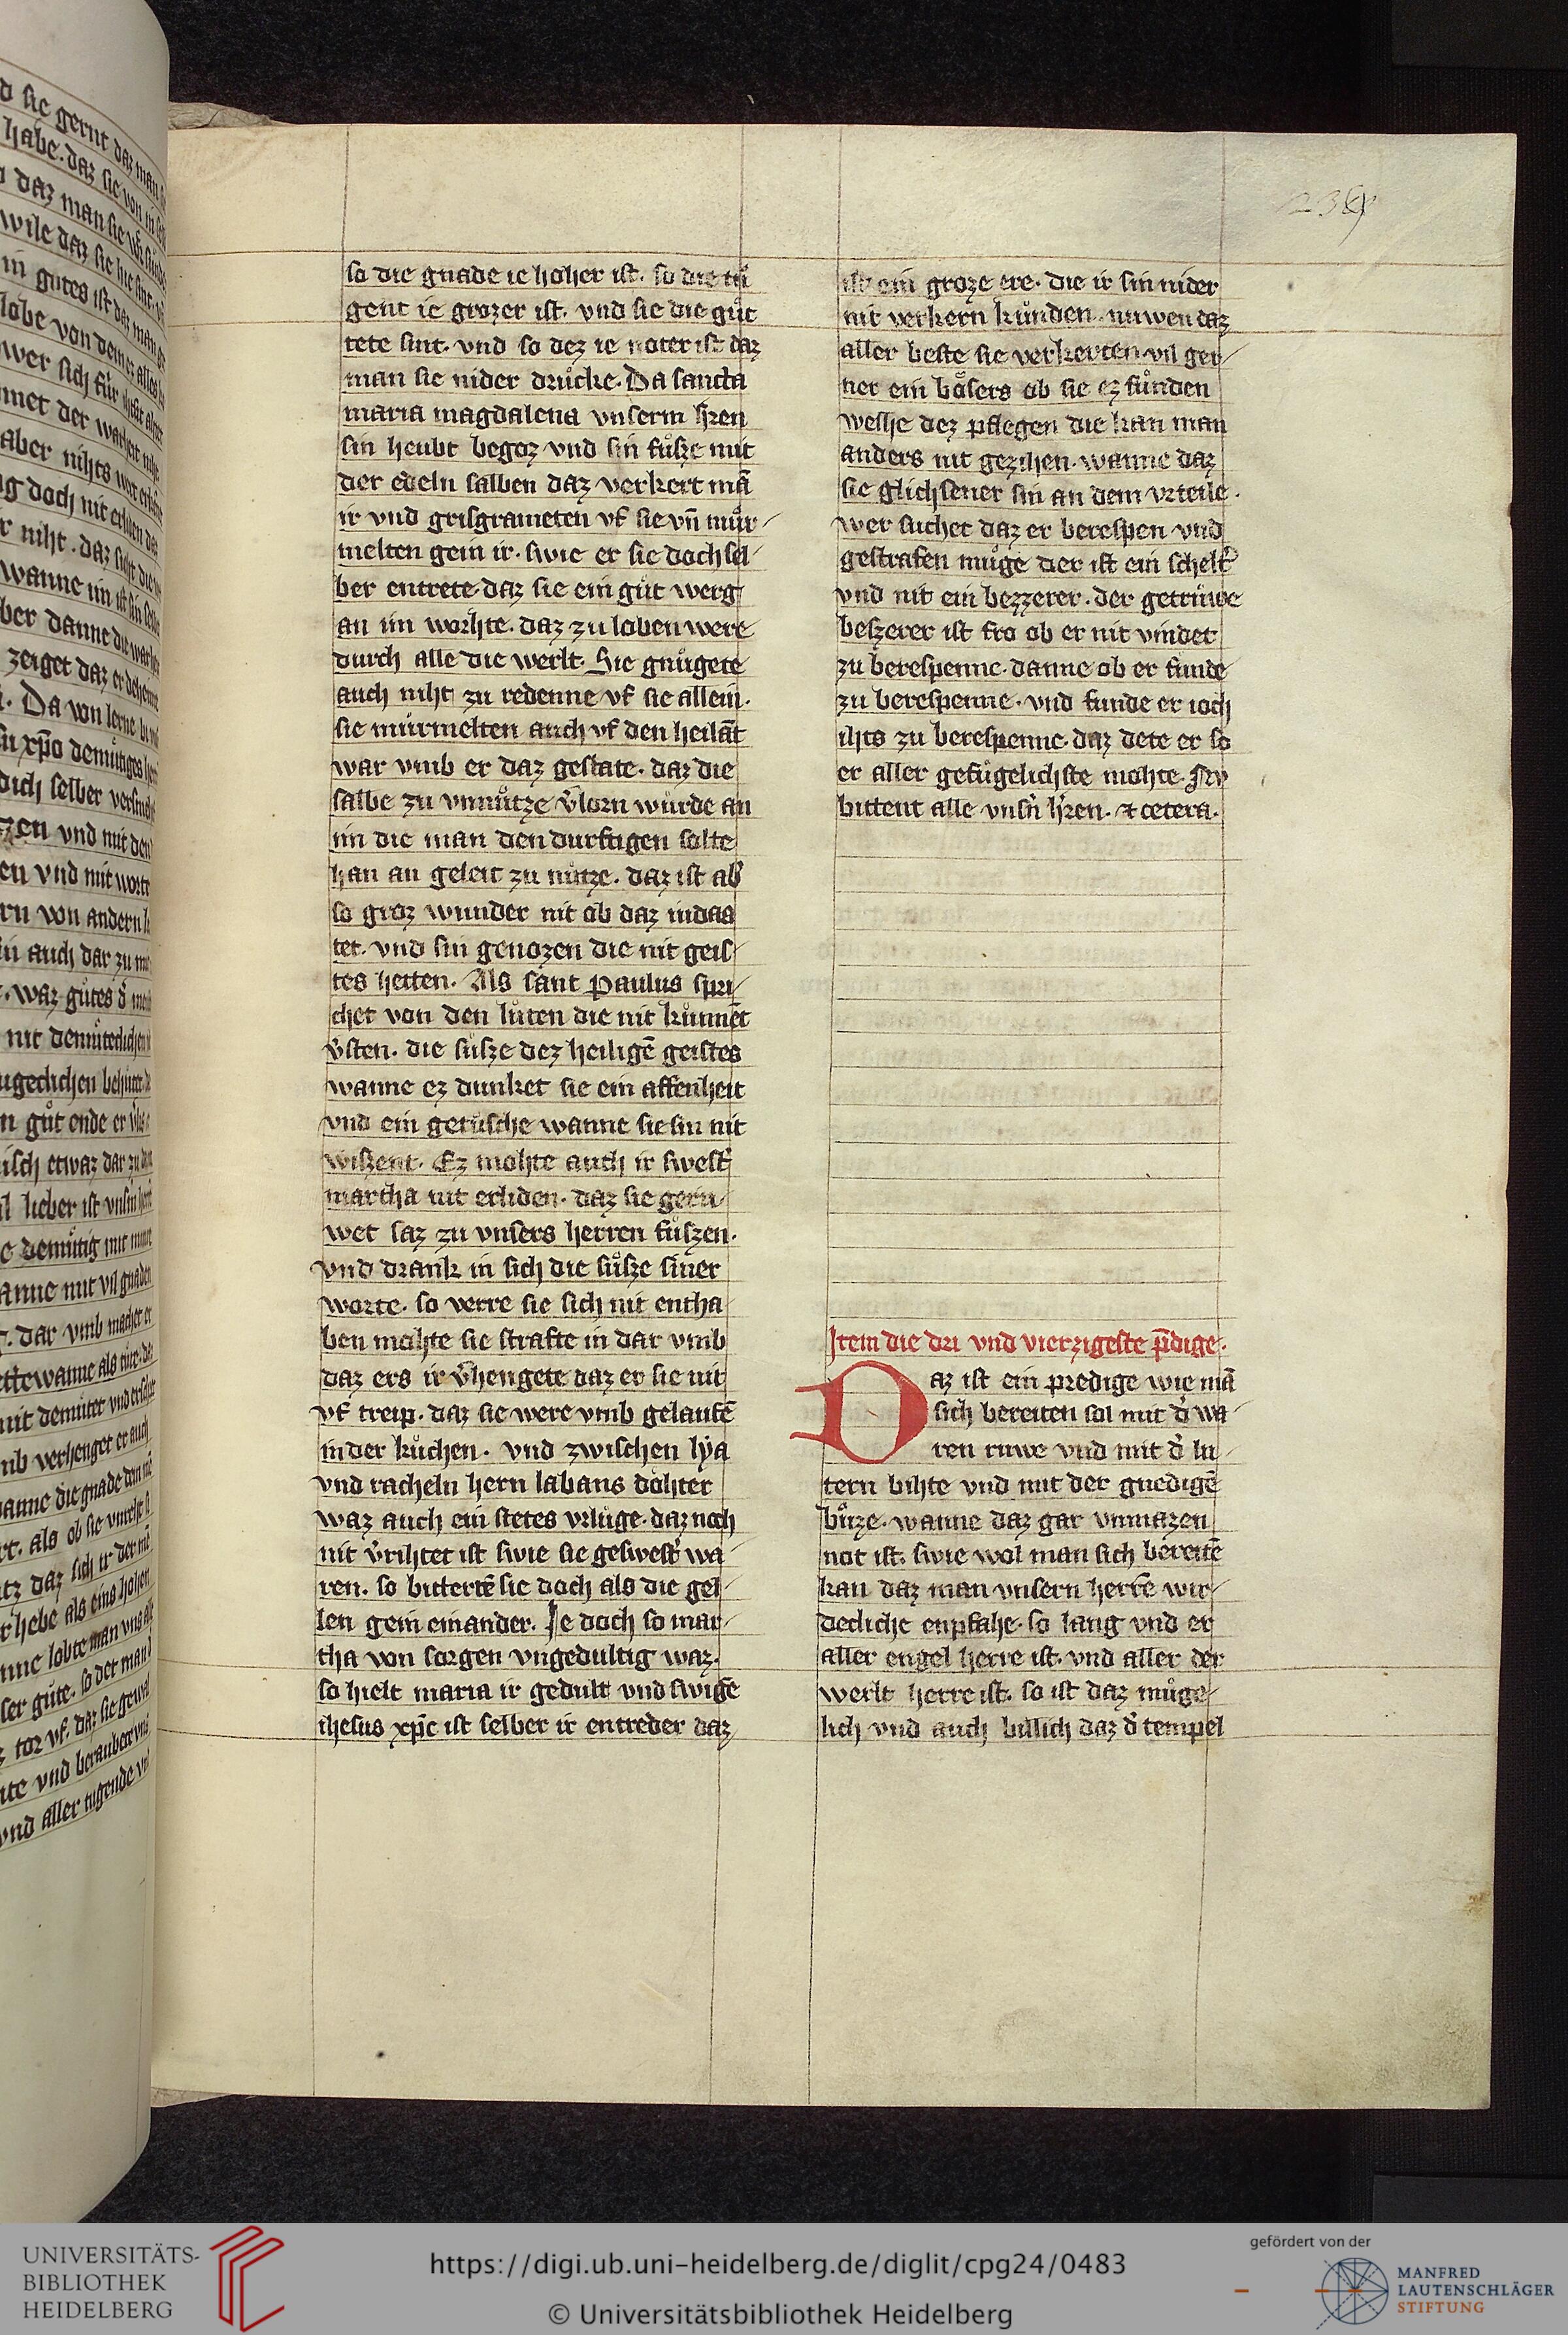 so die gnade ie hoher ist. so die tu
gent ie grozer ist. vnd sie die guͦt
tete sint. vnd so dez ie noter ist daz
man sie nider druͤcke. Da sancta
maria magdalena vnserm hren
sin heubt begoz vnd sin fuͤsze mit
der edeln salben daz verkert mā
ir vnd grisgrameten vf sie vn̄ mur
melten gein ir. swie er sie doch sel
ber entrete daz sie ein guͦt werg
an im worhte. daz zu loben were
durch alle die werlt. Sie gnuͤgete
auch niht zu redenne vf sie allein.
sie murmelten auch vf den heilāt
war vmb er daz gestate. daz die
salbe zu vnnuͤtze v̓lorn wuͤrde an
im die man den durftigen solte
han an geleit zu nuͤtze. daz ist ab̓
so groz wunder nit ob daz iudas
tet. vnd sin genozen die nit geis
tes hetten. Als sant Paulus spri
chet von den luͤten die nit kuͤnnēt
v̓sten. die suͤsze dez heiligē geistes
wanne ez dunket sie ein affenheit
vnd ein getuͤsche wanne sie sin nit
wiszent. Ez mohte auch ir swest̓
martha nit erliden. daz sie geru
wet saz zu vnsers herren fuͤszen.
vnd drank in sich die suͤsze siner
worte. so verre sie sich nit entha
ben mohte sie strafte in dar vmb
daz ers ir v̓hengete daz er sie nit
vf treip. daz sie were vmb gelaufē
in der kuͤchen. vnd zwischen lẏa
vnd racheln hern labans doͤhter
waz auch ein stetes vrluͤge. daz noch
nit v̓rihtet ist swie sie geswest̓ wa
ren. so bittertē sie doch als die gel
len gein einander. Je doch so mar
tha von sorgen vngedultig waz.
so hielt maria ir gedult vnd swigē
ihesus xp̄c ist selber ir entreder daz
ist ein groze ere. die ir sin nider
nit verkern kuͤnden. nuwen daz
aller beste sie verkerten vil ger
ner ein boͤsers ob sie ez fuͤnden
welhe dez pflegen die kan man
anders nit gezihen. wanne daz
sie glichsener sin an dem vrteile.
wer suchet daz er berespen vnd
gestrafen muͤge der ist ein schelt̓
vnd nit ein bezzerer. der getruͤwe
beszerer ist fro ob er nit vindet
zu berespenne. danne ob er funde
zu berespenne. vnd funde er ioch
ihts zu berespenne. daz dete er so
er aller gefuͤgelichste mohte. Nv
bittent alle vnsn̄ hren. et cetera.
Item die dri vnd vierzigeste p̄dige.
Daz ist ein predige wie mā
sich bereiten sol mit d̓ wa
ren ruwe vnd mit d̓ lu
tern bihte vnd mit der gnedigē
buͤze. wanne daz gar vnmazen
not ist. swie wol man sich bereitē
kan daz man vnsern herrē wir
decliche enpfahe. so lang vnd er
aller engel herre ist. vnd aller der
werlt herre ist. so ist daz muͤge
lich vnd auch billich daz d̓ tempel
UNIVERSITÄTS-
BIBLIOTHEK
HEIDELBERG
https://digi.ub.uni-heidelberg.de/diglit/cpg24/0483
© Universitätsbibliothek Heidelberg
gefördert von der
MANFRED
LAUTENSCHLÄGER
STIFTUNG